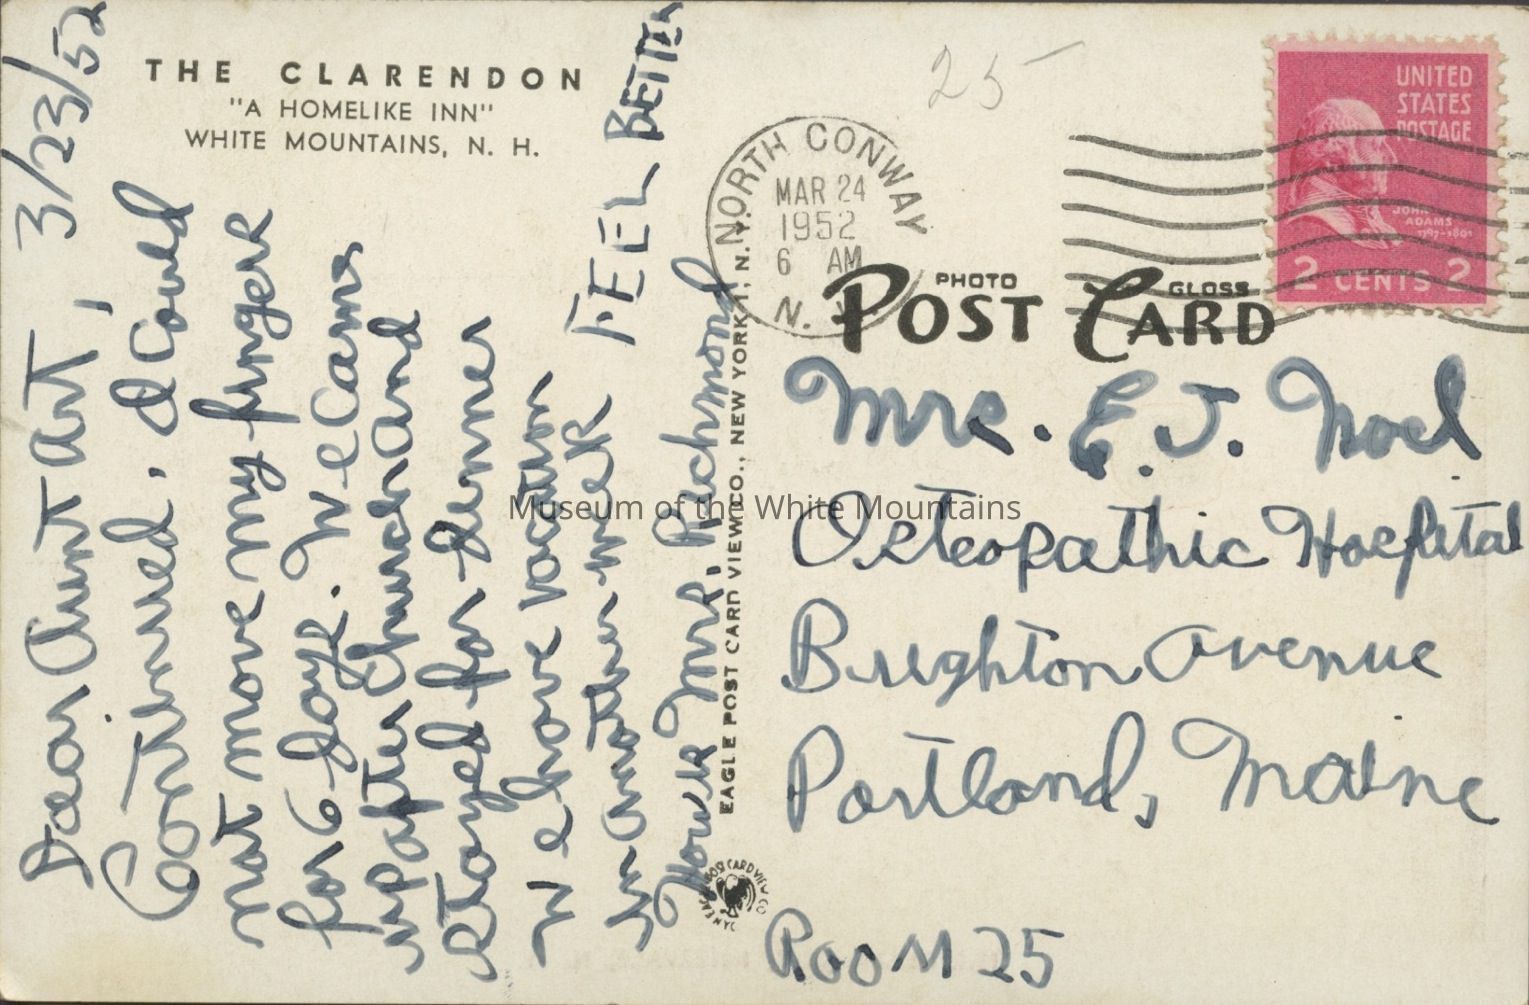 THE CLARENDON
"A HOMELIKE INN"
WHITE MOUNTAINS, N. H.
3/23/52
Dear Aunt Art,
Continued. I could
not move my finger
for 6 days. We came
up after church and
stayed for dinner
We have vacation
in another week FEEL BETTER
Mrs. Richmond
EAGLE POST CARD VIEW CO., NEW YORK 1, N. Y.
25
NORTH CONWAY
MAR 24
1952
6 AM
N. H.
UNITED
STATES
POSTAGE
JOHN
ADAMS
1797-1801
2 CENTS 2
PHOTO GLOSS
POST CARD
Mrs. E. J. Noel
Osteopathic Hospital
Brighton Avenue
Portland, Maine
ROOM 25
Museum of the White Mountains